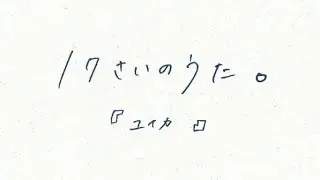 17さいのうた。
『ユイカ』